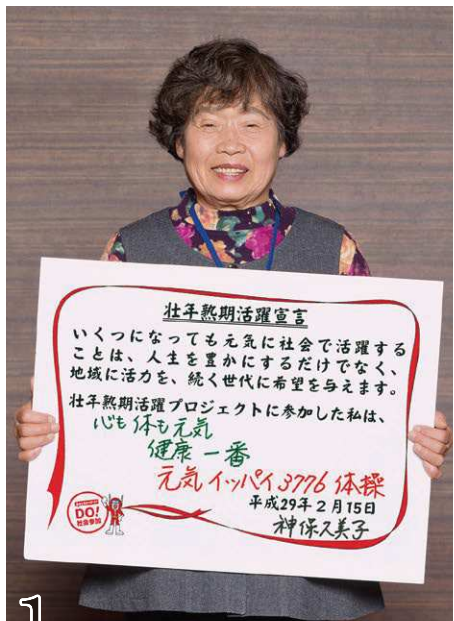 壮年熟期活躍宣言
いくつになっても元気に社会で活躍する
ことは、人生を豊かにするだけでなく、
地域に活力を、続く世代に希望を与えます。
壮年熟期活躍プロジェクトに参加した私は、
心も体も元気
健康一番
元気イッパイ3776体操
平成29年2月15日
神保久美子
DO!
社会参加
1